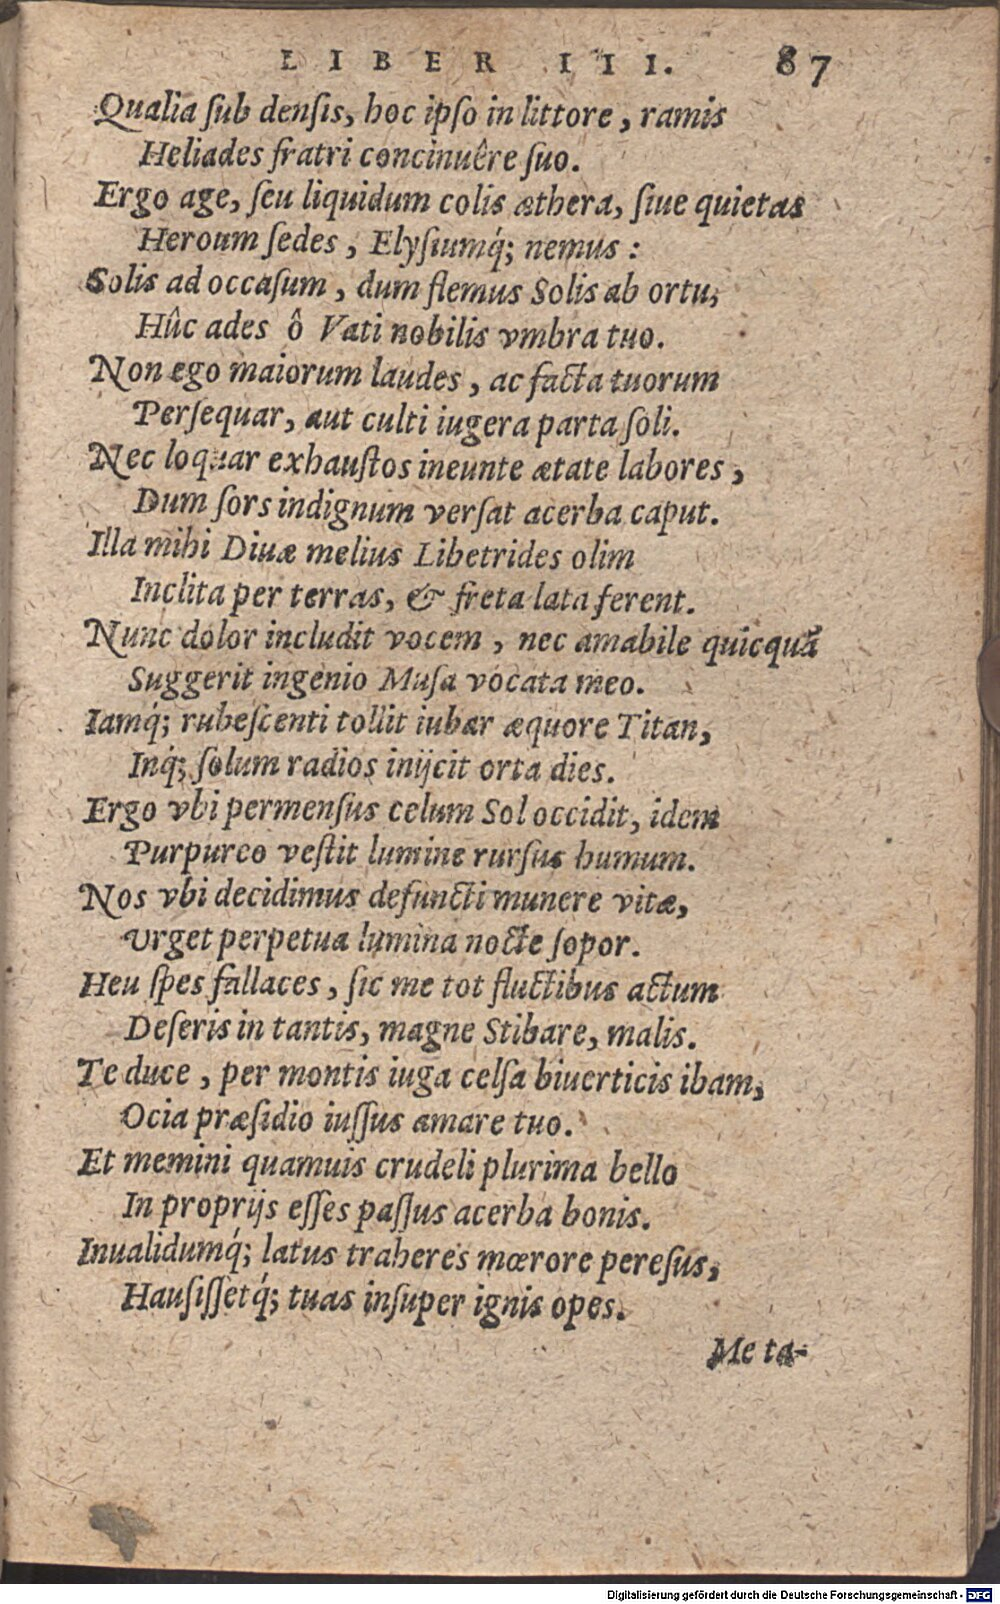 LIBER III. 87
Qualia ſub denſis, hoc ipſo in littore, ramis
Heliades fratri concinuêre ſuo.
Ergo age, ſeu liquidum colis æthera, ſiue quietas
Heroum ſedes, Elyſiumq́; nemus:
Solis ad occaſum, dum flemus Solis ab ortu,
Hûc ades ô Vati nobilis vmbra tuo.
Non ego maiorum laudes, ac facta tuorum
Perſequar, aut culti iugera parta ſoli.
Nec loquar exhauſtos ineunte ætate labores,
Dum ſors indignum verſat acerba caput.
Illa mihi Diuæ melius Libetrides olim
Inclita per terras, & freta lata ferent.
Nunc dolor includit vocem, nec amabile quicquã
Suggerit ingenio Muſa vocata meo.
Iamq́; rubeſcenti tollit iubar æquore Titan,
Inq́; ſolum radios inijcit orta dies.
Ergo vbi permenſus celum Sol occidit, idem
Purpureo veſtit lumine rurſus humum.
Nos vbi decidimus defuncti munere vitæ,
Vrget perpetua lumina nocte ſopor.
Heu ſpes fallaces, ſic me tot fluctibus actum
Deſeris in tantis, magne Stibare, malis.
Te duce, per montis iuga celſa biuerticis ibam,
Ocia præſidio iuſſus amare tuo.
Et memini quamuis crudeli plurima bello
In proprijs eſſes paſſus acerba bonis.
Inualidumq́; latus traheres mœrore pereſus,
Hauſiſſetq́; tuas inſuper ignis opes.
Me ta-
Digitalisierung gefördert durch die Deutsche Forschungsgemeinschaft - DFG